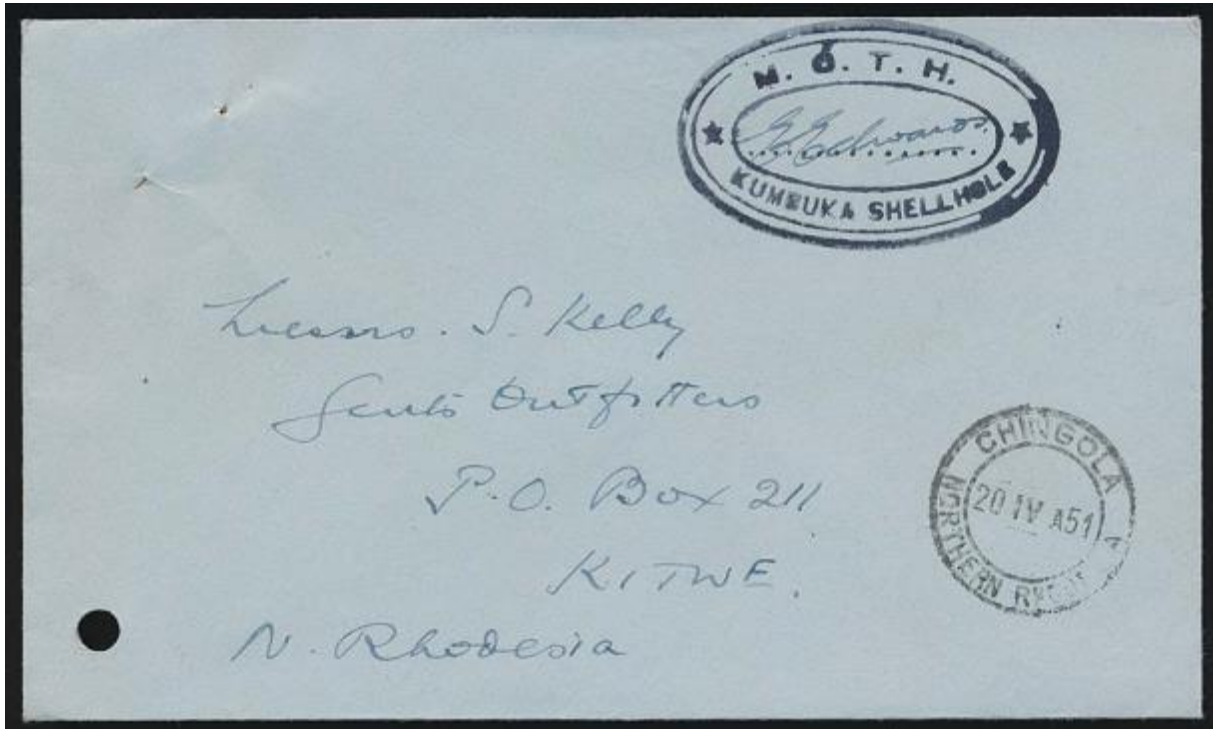 M. O. T. H.
G Edwards.
KUMBUKA SHELLHOLE
Messrs. S. Kelly
Gents Outfitters
P.O. Box 211
KITWE.
N. Rhodesia
CHINGOLA
20 IV A51
NORTHERN